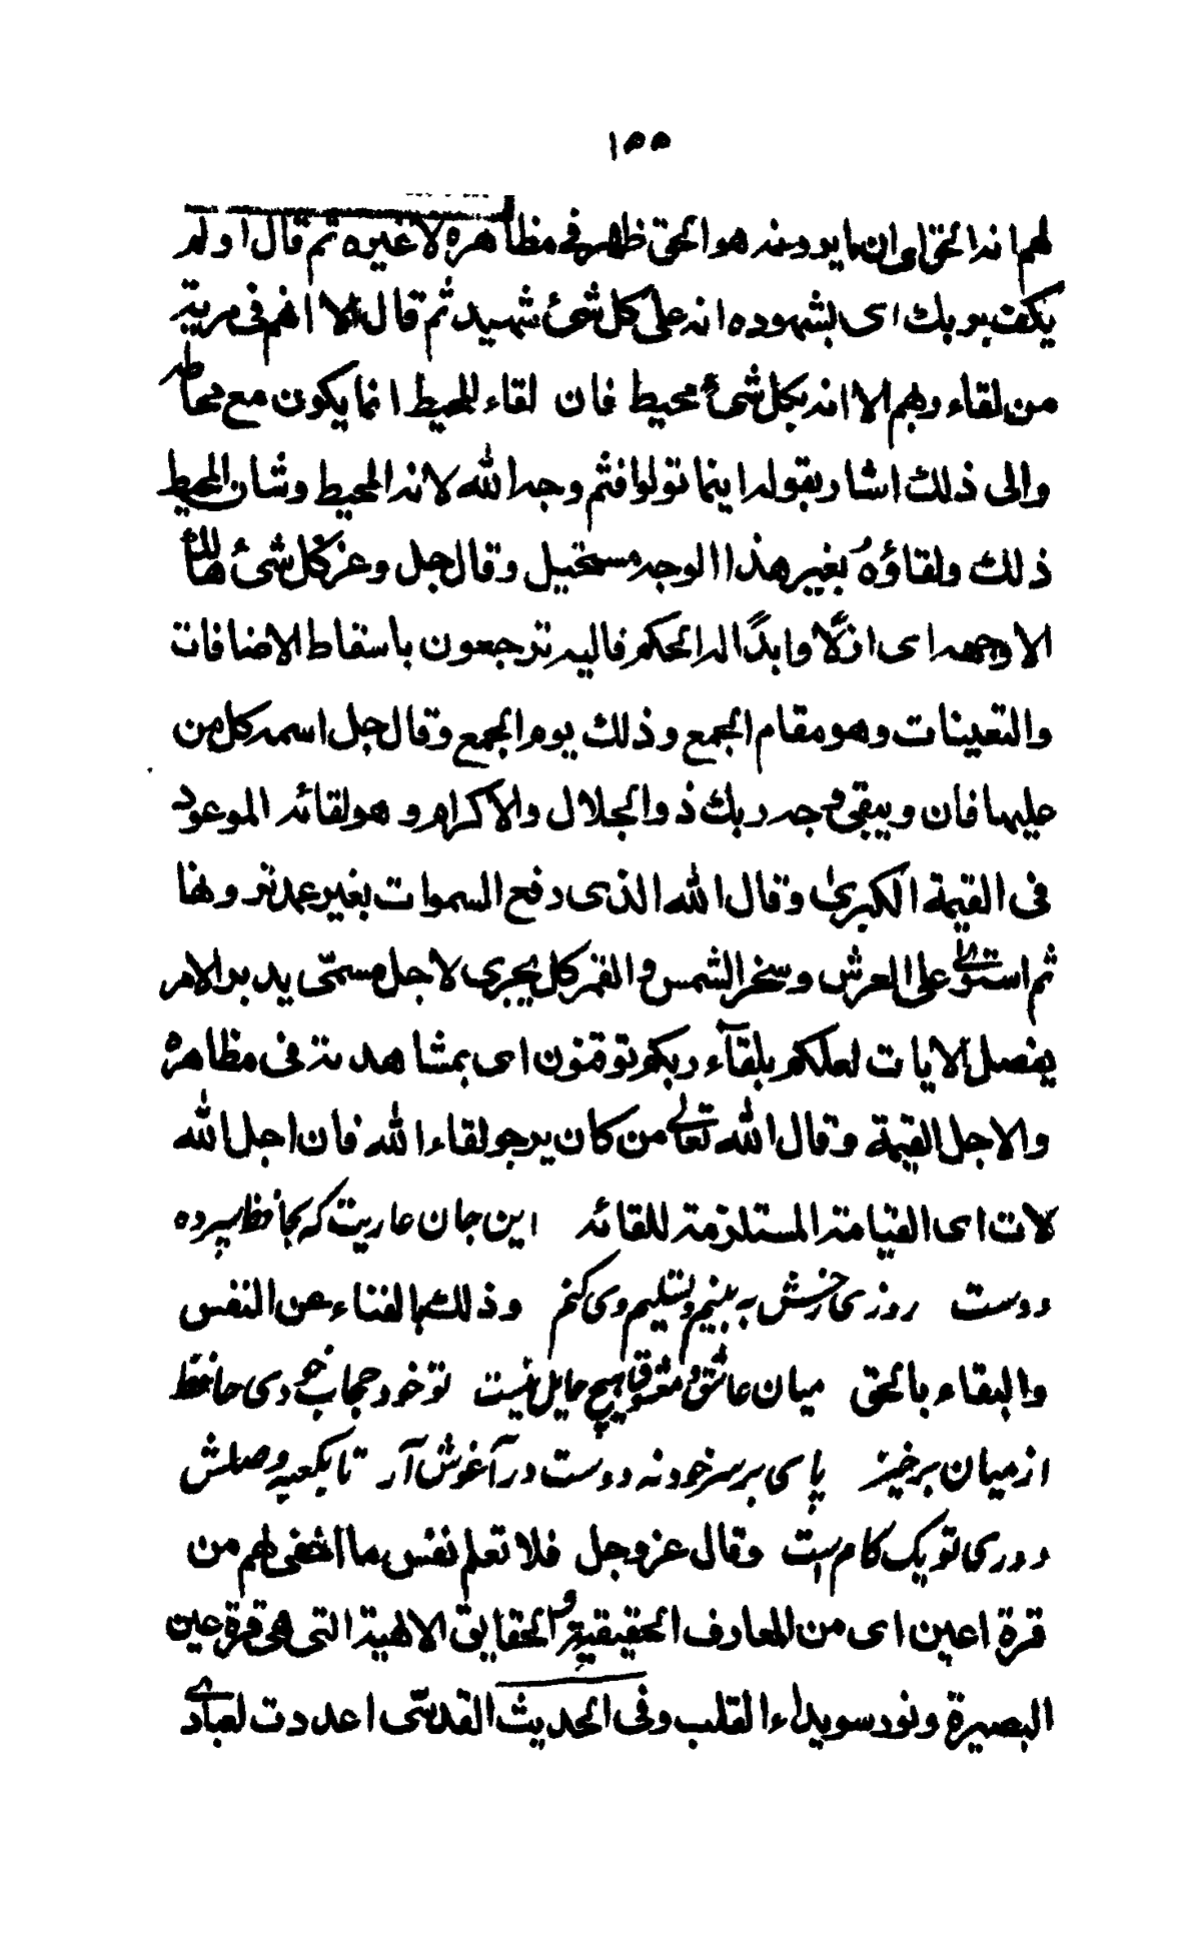 ١٥٥
لهم انه الحق اى ان ما يرونه هو الحق ظهر فى مظاهره لا غيره ثم قال اولم
يكف بربك اى بشهوده انه على كل شئ شهيد ثم قال الا انهم فى مرية
من لقاء ربهم الا انه بكل شئ محيط فان لقاء المحيط انما يكون مع محاطه
والى ذلك اشار بقوله اينما تولوا فثم وجه الله لانه المحيط وشان المحيط
ذلك ولقاؤه بغير هذا الوجه مستحيل وقال جل وعز كل شئ هالك
الا وجهه اى ازلًا وابدًا له الحكم فاليه ترجعون باسقاط الاضافات
والتعينات وهو مقام الجمع وذلك يوم الجمع وقال جل اسمه كل من
عليها فان ويبقى وجه ربك ذو الجلال والاكرام وهو لقائه الموعود
فى القيمة الكبرىٰ وقال الله الذى رفع السموات بغير عمد ترونها
ثم استوىٰ على العرش وسخر الشمس والقمر كل يجرى لاجل مسمّى يدبر الامر
يفصل الايات لعلكم بلقآء ربكم توقنون اى بمشاهدته فى مظاهره
والاجل القيمة وقال الله تعالى من كان يرجو لقاء الله فان اجل الله
لات اى القيامة المستلزمة للقائه این جان عاریت که بحافظ سپرده
دوست روزی رخش به بینم و تسلیم وی کنم وذلك بالفناء عن النفس
والبقاء بالحق میان عاشق و معشوق هیچ حایل نیست تو خود حجاب خودی حافظ
از میان برخیز پای بر سر خود نه دوست در آغوش آر تا بکعبه وصلش
دوری تو یک کام است وقال عز وجل فلا تعلم نفس ما اخفى لهم من
قرة اعين اى من المعارف الحقيقية والحقايق الالهية التى هى قرة عين
البصيرة ونور سويداء القلب وفى الحديث القدسّى اعددت لعبادى